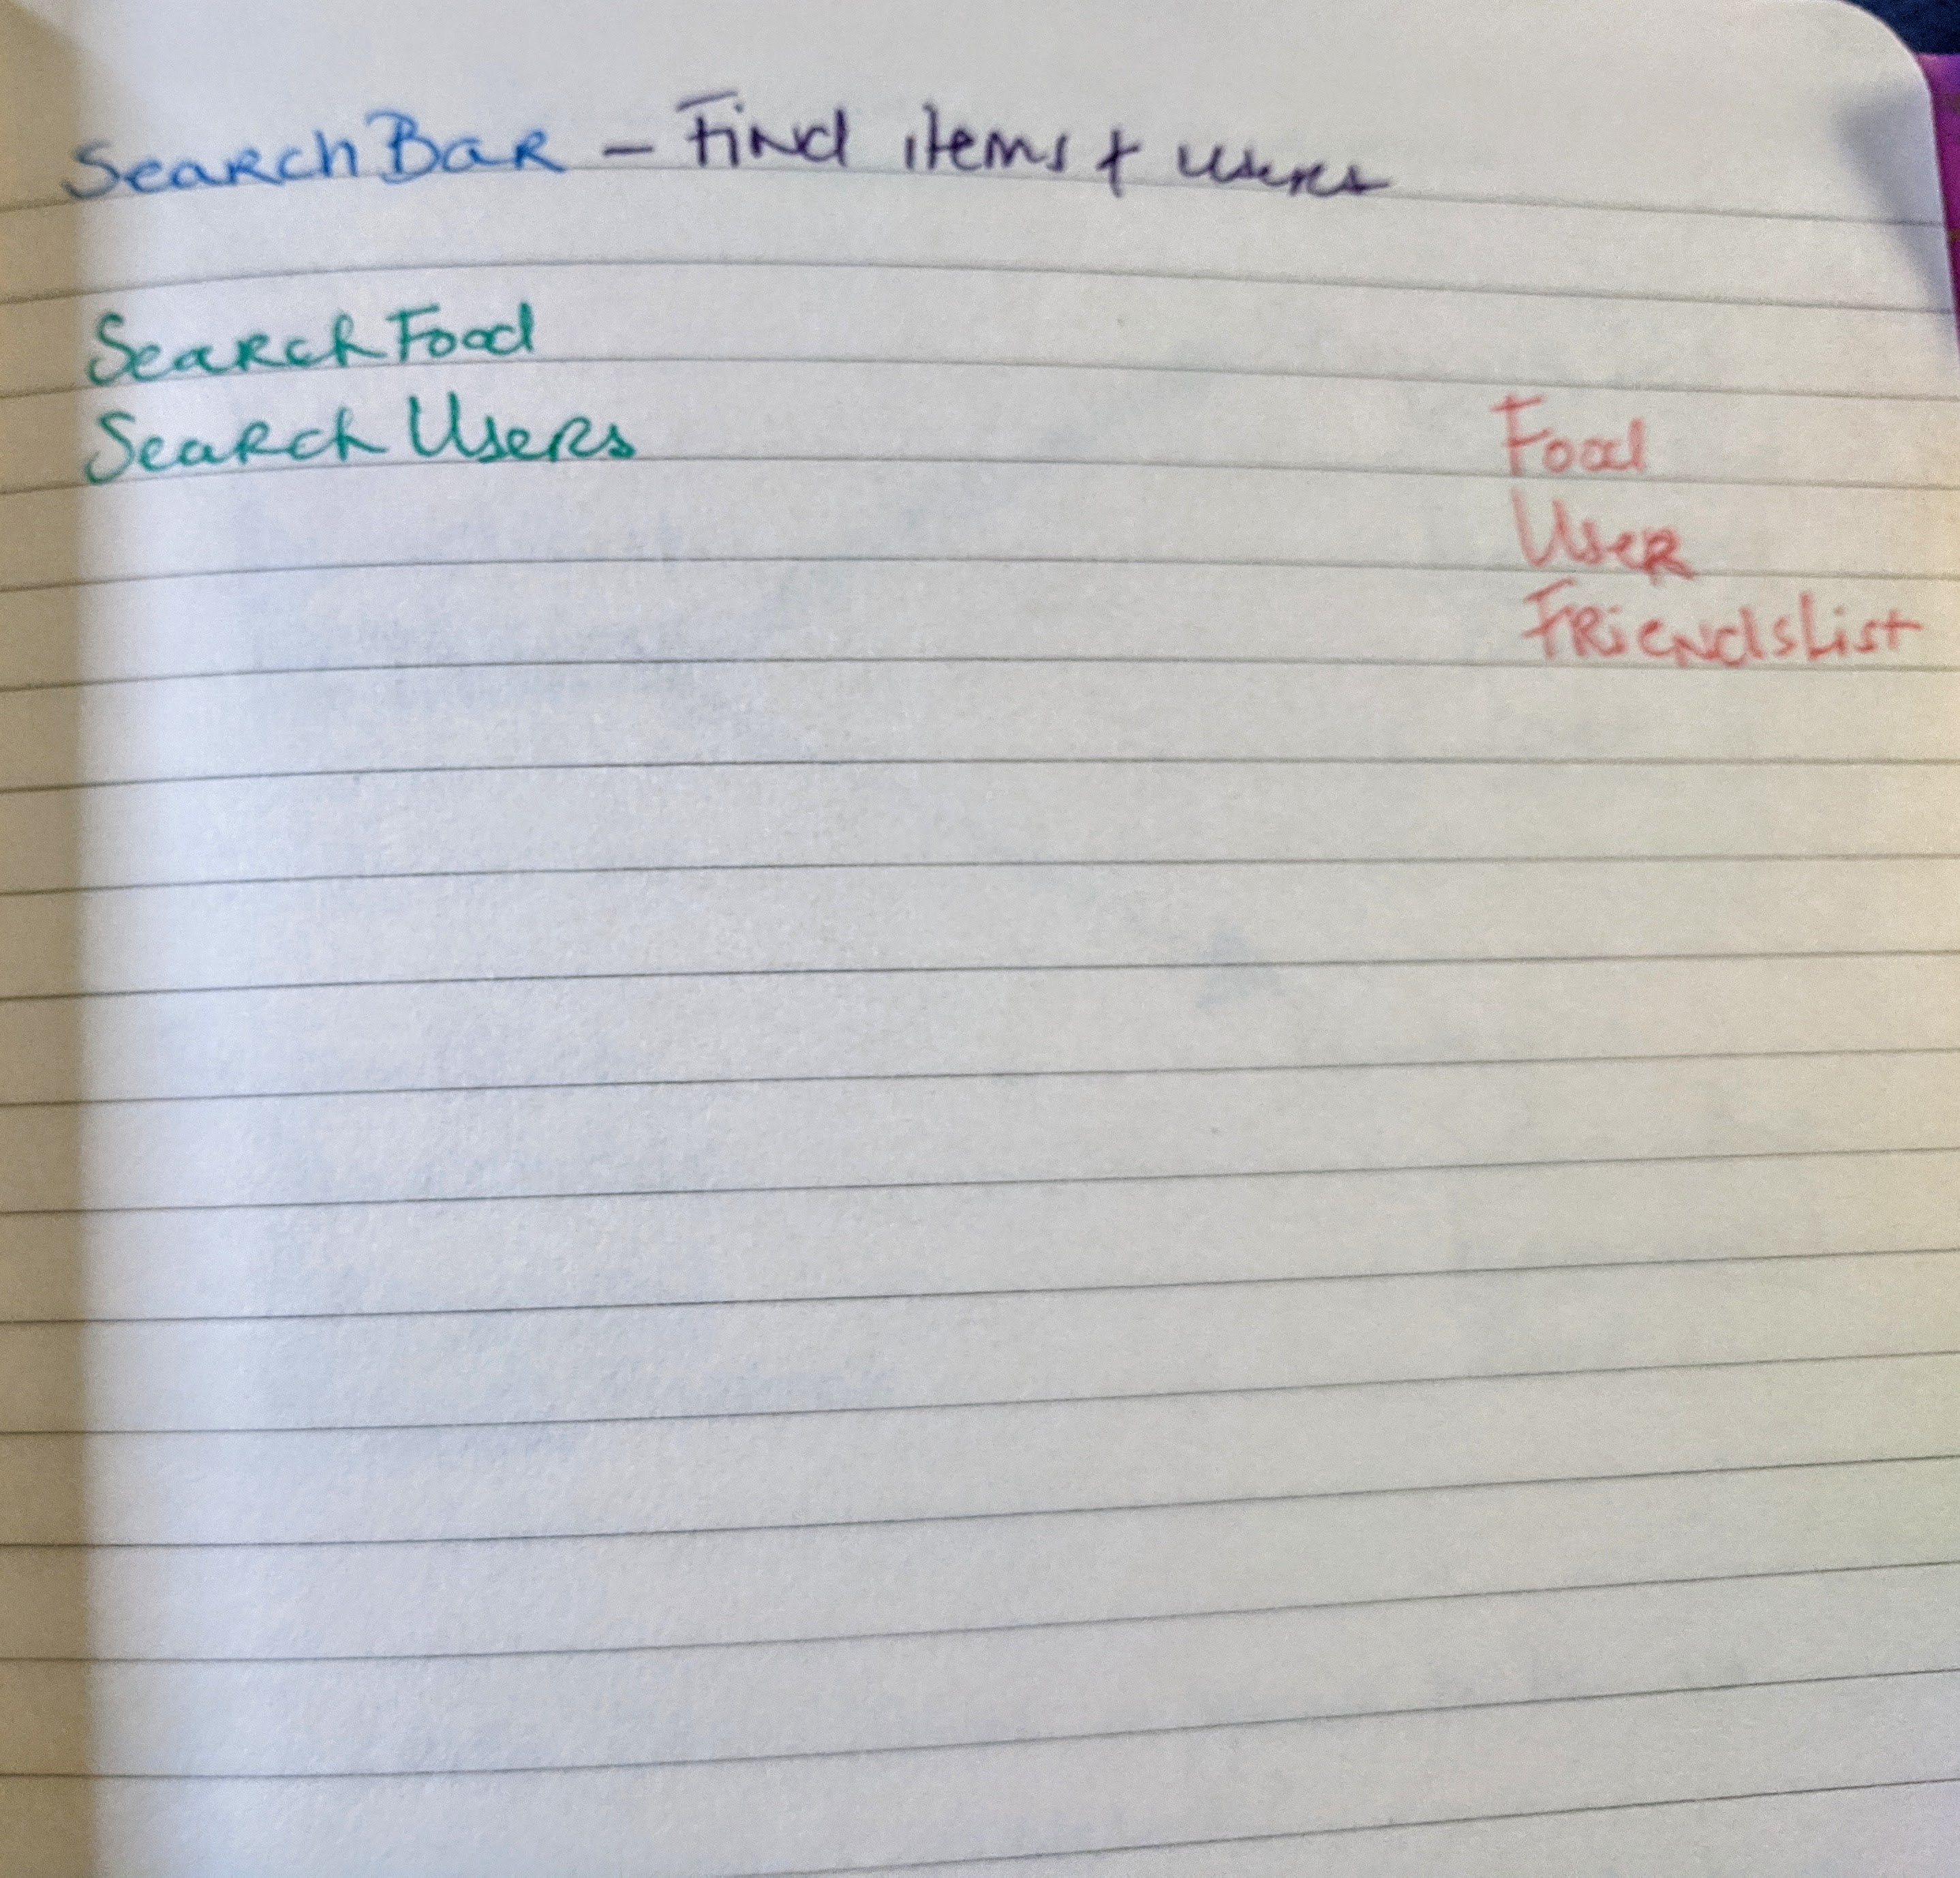 SearchBar - Find items + users
SearchFood
SearchUsers
Food
User
FriendsList